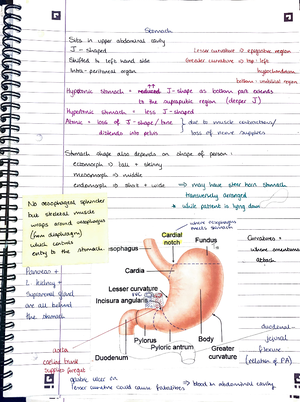 Stomach
Sits in upper abdominal cavity
J - shaped
Shifted to left hand side
Intra-peritoneal organ
Lesser curvature => epigastric region
Greater curvature => top: left
hypochondrium
bottom: umbilical region
Hypotonic stomach = reduced J-shape as bottom part extends
to the suprapubic region (deeper J)
Hypertonic stomach = less J-shaped
Atonic = loss of J-shape / tone
distends into pelvis
due to muscle contractions/
loss of nerve supplies
Stomach shape also depends on shape of person:
ectomorph => tall + skinny
mesomorph => middle
endomorph => short + wide
=> may have steer horn stomach
transversely arranged
* while patient is lying down
No oesophageal sphincter
but skeletal muscle
wraps around oesophagus
(from diaphragm)
which controls
entry to the stomach
where oesophagus
meets stomach
esophagus
Cardial
notch
Fundus
Cardia
Lesser curvature
Incisura angularis
Pylorus
Pyloric antrum
Body
Duodenum
Greater
curvature
Curvatures =
where omentums
attach
Pancreas +
L kidney +
Suprarenal gland
are all behind
the stomach
aorta
coeliac trunk
supplies foregut
duodenal-
jejunal
flexure
gastric ulcer on
lesser curvature could cause
=> blood in abdominal cavity